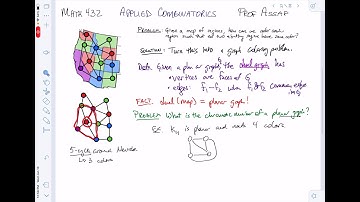 MATH 432 APPLIED COMBINATORICS PROF ASSAF
PROBLEM: Given a map of regions, how can we color each
region such that no two abutting regions have same color?
SOLUTION: Turn this into a graph coloring problem.
Defn. Given a planar graph G, the dual graph has
• vertices are faces of G
• edges: f₁-f₂ when f₁ & f₂ common edge in G
FACT: dual(map) = planar graph!
PROBLEM: What is the chromatic number of a planar graph?
Ex: K₄ is planar and needs 4 colors
5-cycle around Nevada
↳ 3 colors